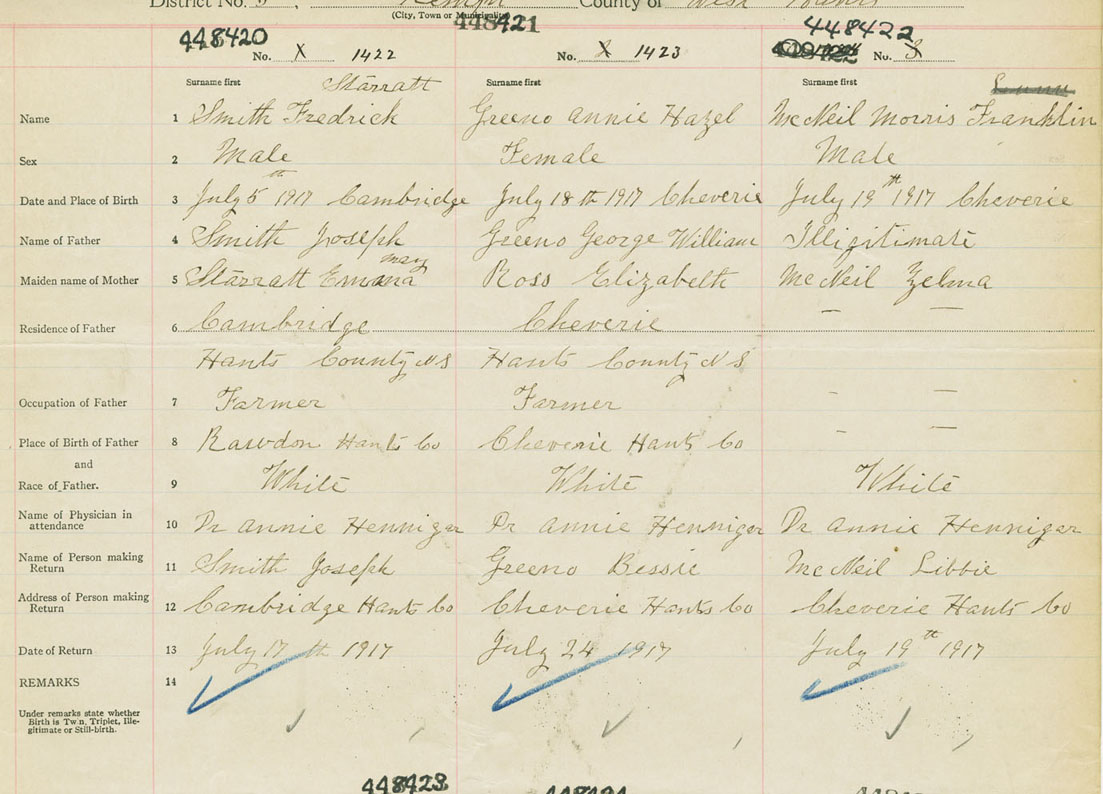 District No. 5, Kempt County of West Hants
(City, Town or Municipality)
448420 448421 448422
No. X 1422 No. X 1423 No.
Surname first Starratt Surname first Surname first
Name 1 Smith Fredrick Greeno Annie Hazel McNeil Morris Franklin
Sex 2 Male Female Male
Date and Place of Birth 3 July 5th 1917 Cambridge July 18th 1917 Cheverie July 19th 1917 Cheverie
Name of Father 4 Smith Joseph Greeno George William Illigitimate
may
Maiden name of Mother 5 Starratt Emma Ross Elizabeth McNeil Zelma
Residence of Father 6 Cambridge Cheverie – –
Hants County N S Hants County N S
Occupation of Father 7 Farmer Farmer – –
Place of Birth of Father 8 Rawdon Hants Co Cheverie Hants Co – –
and
Race of Father. 9 White White White
Name of Physician in
attendance 10 Dr Annie Hennigar Dr Annie Hennigar Dr Annie Hennigar
Name of Person making
Return 11 Smith Joseph Greeno Bessie McNeil Libbie
Address of Person making
Return 12 Cambridge Hants Co Cheverie Hants Co Cheverie Hants Co
Date of Return 13 July 17th 1917 July 24 1917 July 19th 1917
REMARKS 14
Under remarks state whether
Birth is Twin, Triplet, Ille-
gitimate or Still-birth.
448423 448424